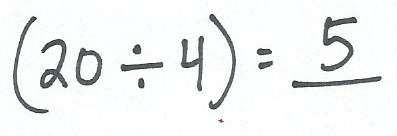 (20 ÷ 4) = 5